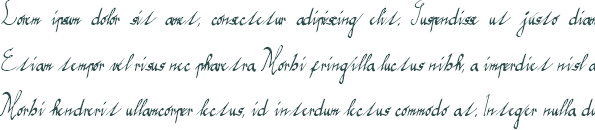 Lorem ipsum dolor sit amet, consectetur adipiscing elit. Suspendisse ut justo diam
Etiam tempor vel risus nec pharetra. Morbi fringilla luctus nibh, a imperdiet nisl a
Morbi hendrerit ullamcorper lectus, id interdum lectus commodo at. Integer nulla du